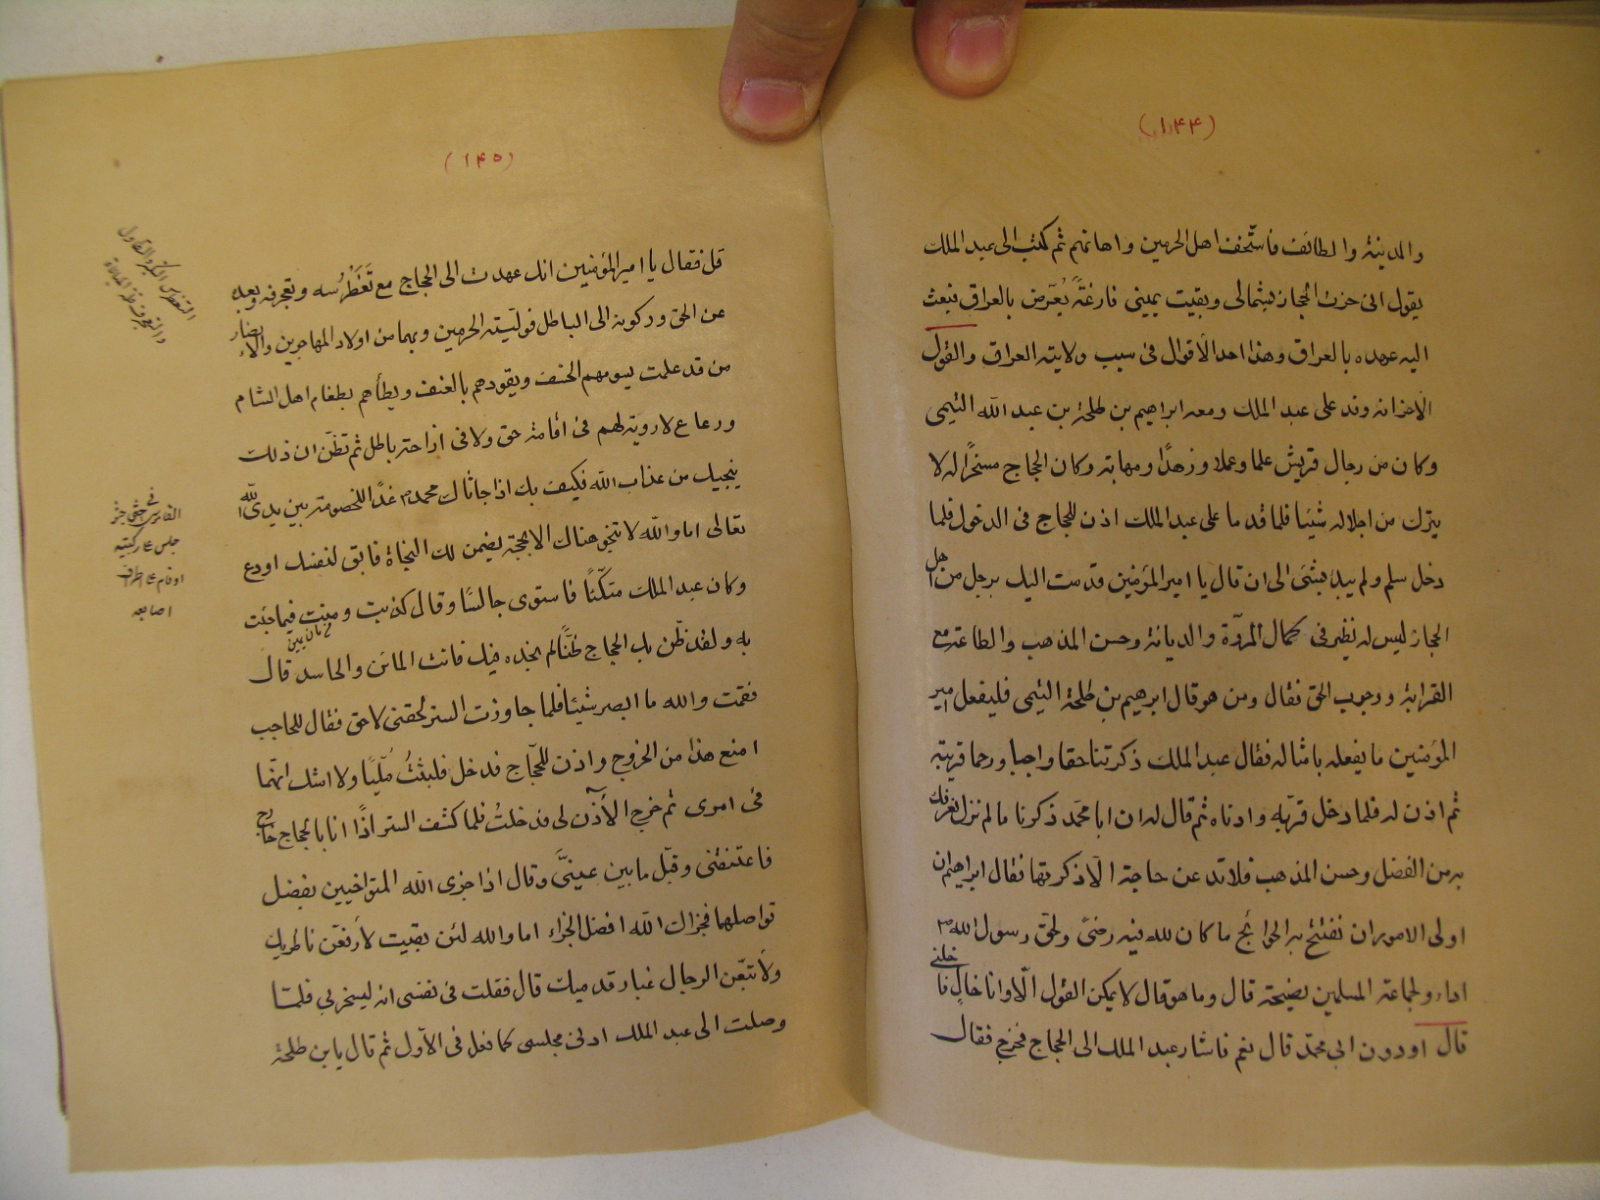 (١۴۴)
والمدينة والطائف فاستخف اهل الحرمين واهانهم ثم كتب الى عبد الملك
يقول انى حزت الحجاز بشمالى وبقيت يمينى فارغةً يُعرّض بالعراق فبعث
اليه عهده بالعراق وهذا احد الأقوال فى سبب ولايته العراق والقول
الآخر انه وفد على عبد الملك ومعه ابراهيم بن طلحة بن عبد الله التيمى
وكان من رجال قريش علما وعملا وزهدًا ومهابة وكان الحجاج مسخرًا له لا
يترك من اجلاله شيئا فلما قدما على عبد الملك اذن للحجاج فى الدخول فلما
دخل سلم ولم يبد بشئ الى ان قال يا امير المؤمنين قدمت اليك برجل من اهل
الحجاز ليس له نظير فى كمال المروّة والديانة وحسن المذهب والطاعة مع
القرابة ووجوب الحق فقال ومن هو قال ابرهيم بن طلحة التيمى فليفعل امير
المؤمنين ما يفعله بامثاله فقال عبد الملك ذكرتنا حقا واجبا ورحما قريبة
ثم اذن له فلما دخل قربه وادناه ثم قال له ان ابا محمد ذكرنا ما لم نزل نعرفك
به من الفضل وحسن المذهب فلا تدعن حاجة الّا ذكرتها فقال ابراهيم ان
اولى الامور ان نفتتح به الحوائج ما كان لله فيه رضىً ولحق رسول الله ص
اداء ولجماعة المسلمين نصيحة قال وما هو قال لا يمكن القول الّا وانا خالٍ فاخلنى
قال اودون ابى محمد قال نعم فاشار عبد الملك الى الحجاج فخرج فقال
(١۴۵)
قل فقال يا امير المؤمنين انك عهدت الى الحجاج مع تَغَطْرُسه وتعجرفه وبعده
عن الحق وركونه الى الباطل فوليته الحرمين وبهما من اولاد المهاجرين والانصار
من قد علمت يسومهم الخسف ويقودهم بالعنف ويطأهم بطغام اهل الشام
ورعاع لا روية لهم فى اقامة حق ولا فى ازاحة باطل ثم تظن ان ذلك
ينجيك من عذاب الله فكيف بك اذا جاثاك محمد ص غدًا للخصومة بين يدى الله
تعالى اما والله لا تنجو هناك الا بحجة يضمن لك النجاة فابق لنفسك او دع
وكان عبد الملك متكّئًا فاستوى جالسًا وقال كذبت ومنت فيما جئت
به ولقد ظن بك الحجاج ظنًّا لم يجده فيك فانت المائن والحاسد قال
مان يمين
فقمت والله ما ابصر شيئا فلما جاوزت الستر لحقنى لاحق فقال للحاجب
امنع هذا من الخروج واذن للحجّاج فدخل فلبثتُ مليًا ولا اشك انهما
فى امرى ثم خرج الأذن لى فدخلتُ فلما كشف الستر اذًا انا بالحجاج خارج
فاعتنقنى وقبّل ما بين عينىَّ وقال اذا جزى الله المتواخيين بفضل
تواصلها فجزاك الله افضل الجزاء اما والله لئن بقيت لأرفعن ناظريك
ولأتبعّن الرجال غبار قدميك قال فقلت فى نفسى انه ليسخر بى فلمّا
وصلت الى عبد الملك ادنى مجلسى كما فعل فى الأول ثم قال يا بن طلحة
التغطرس التكبر والتطاول
جلس على ركبتيه
او قام على اطراف
اصابعه